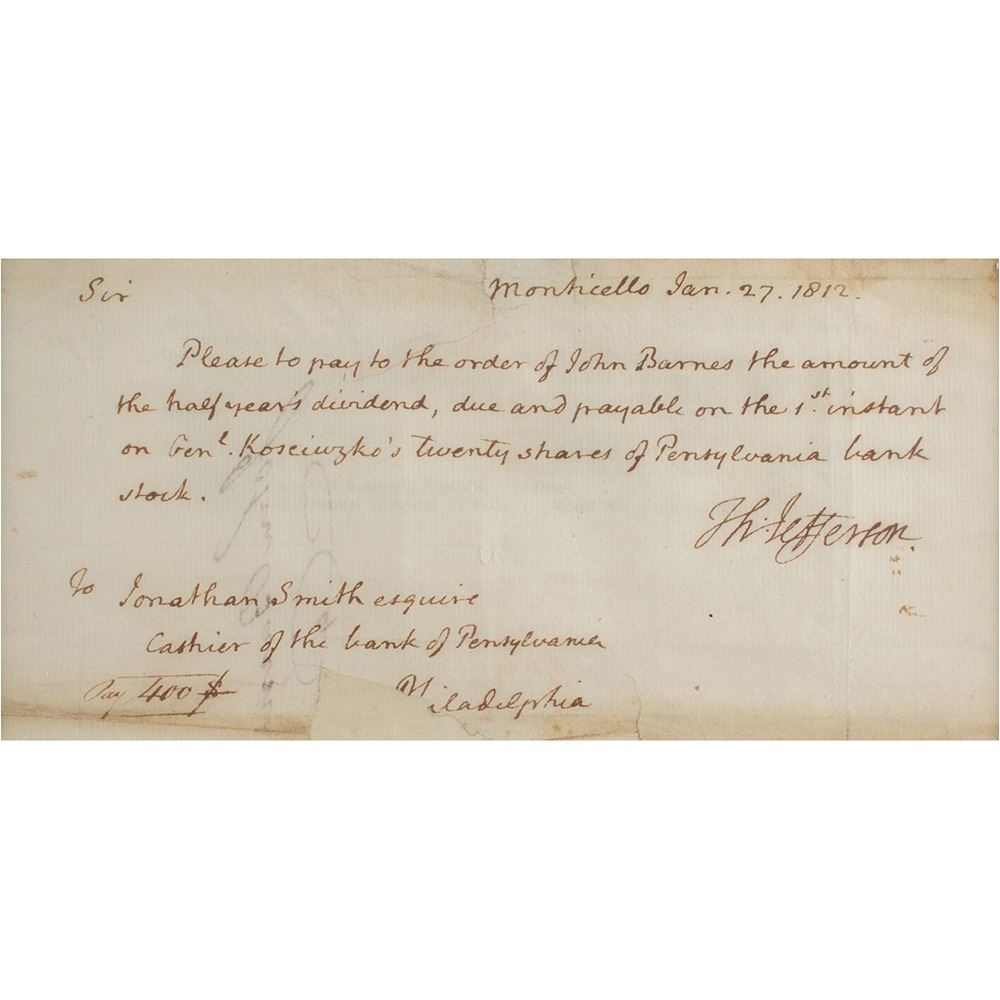 Sir Monticello Jan. 27. 1812.
Please to pay to the order of John Barnes the amount of
the half year's dividend, due and payable on the 1.st instant
on Genl. Kosciuzko's twenty shares of Pensylvania bank
stock.
Th: Jefferson
To Jonathan Smith esquire
Cashier of the bank of Pensylvania
Philadelphia
Pay 400 $